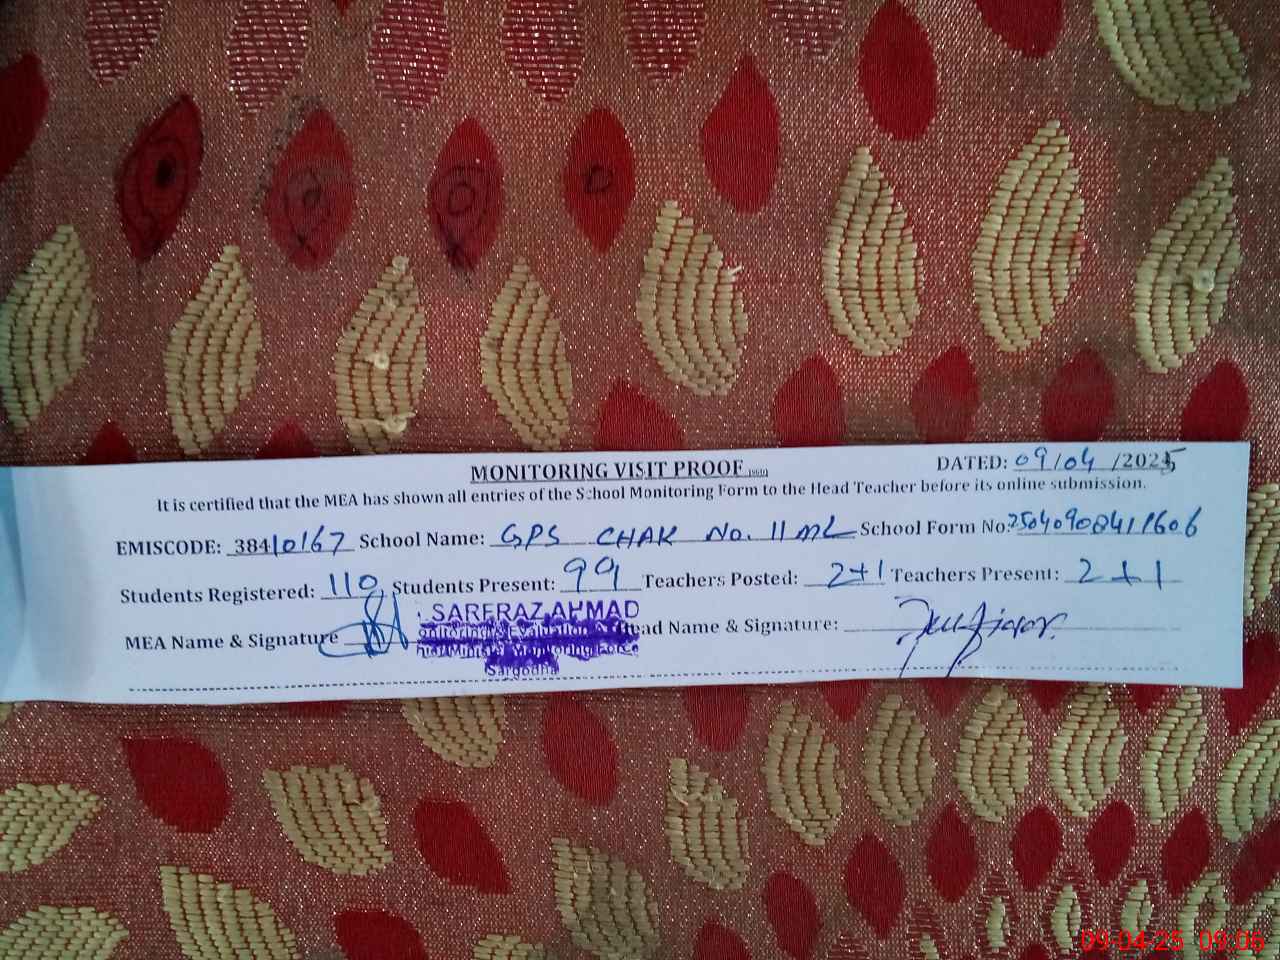 MONITORING VISIT PROOF
DATED: 09/04/2025
It is certified that the MEA has shown all entries of the School Monitoring Form to the Head Teacher before its online submission.
EMISCODE: 38410167 School Name: GPS CHAK No. 11 ML School Form No:
Students Registered: 110 Students Present: 99 Teachers Posted: 2+1 Teachers Present: 2+1
MEA Name & Signature SARFRAZ AHMAD Head Name & Signature:
Monitoring & Evaluation
Chief Minister Monitoring Force
Sargodha
09-04-25 09:06